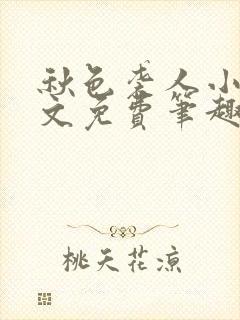 秋色袭人小
文免费笔趣
桃天花凉